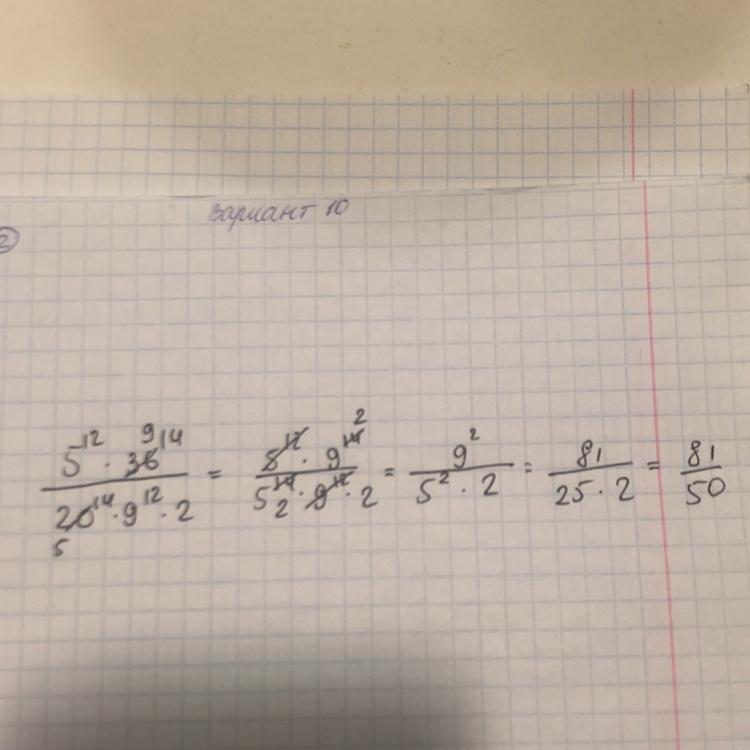 Вариант 10
2
5^12 · 36^14 9 / 20^14 5 · 9^12 · 2 = 5^12 · 9^14 2 / 5^14 2 · 9^12 · 2 = 9^2 / 5^2 · 2 = 81 / 25 · 2 = 81 / 50